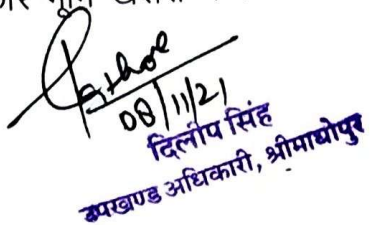 08/11/21
दिलीप सिंह
उपखण्ड अधिकारी, श्रीमाधोपुर